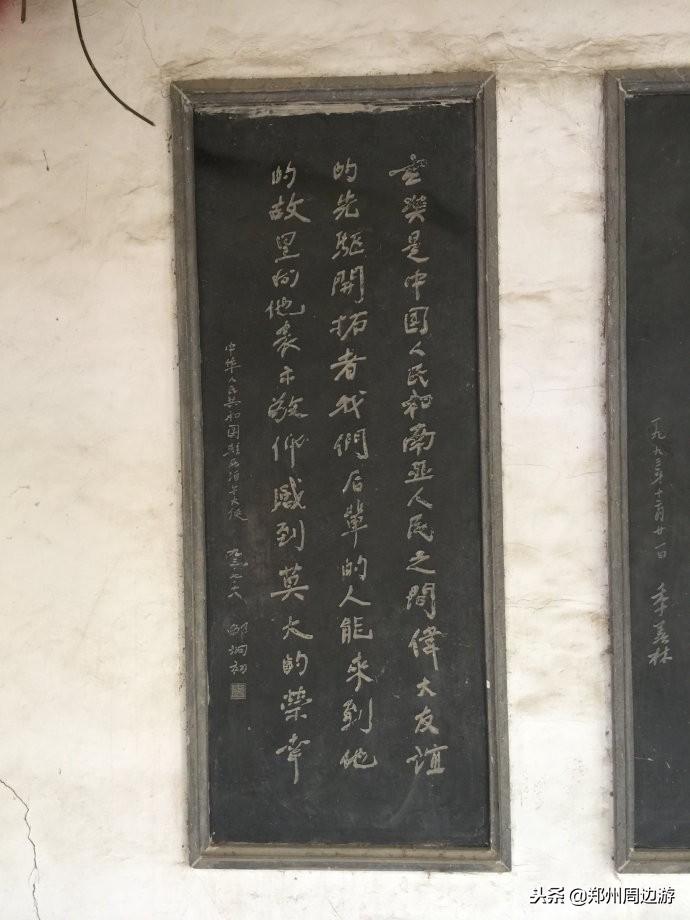 一九九三年十二月廿一日 季羡林
玄奘是中国人民和南亚人民之間偉大友誼
的先驅開拓者我們后輩的人能来到他
的故里向他表示敬仰感到莫大的榮幸
中华人民共和国駐尼泊尔大使 邵炯初
头条 @郑州周边游